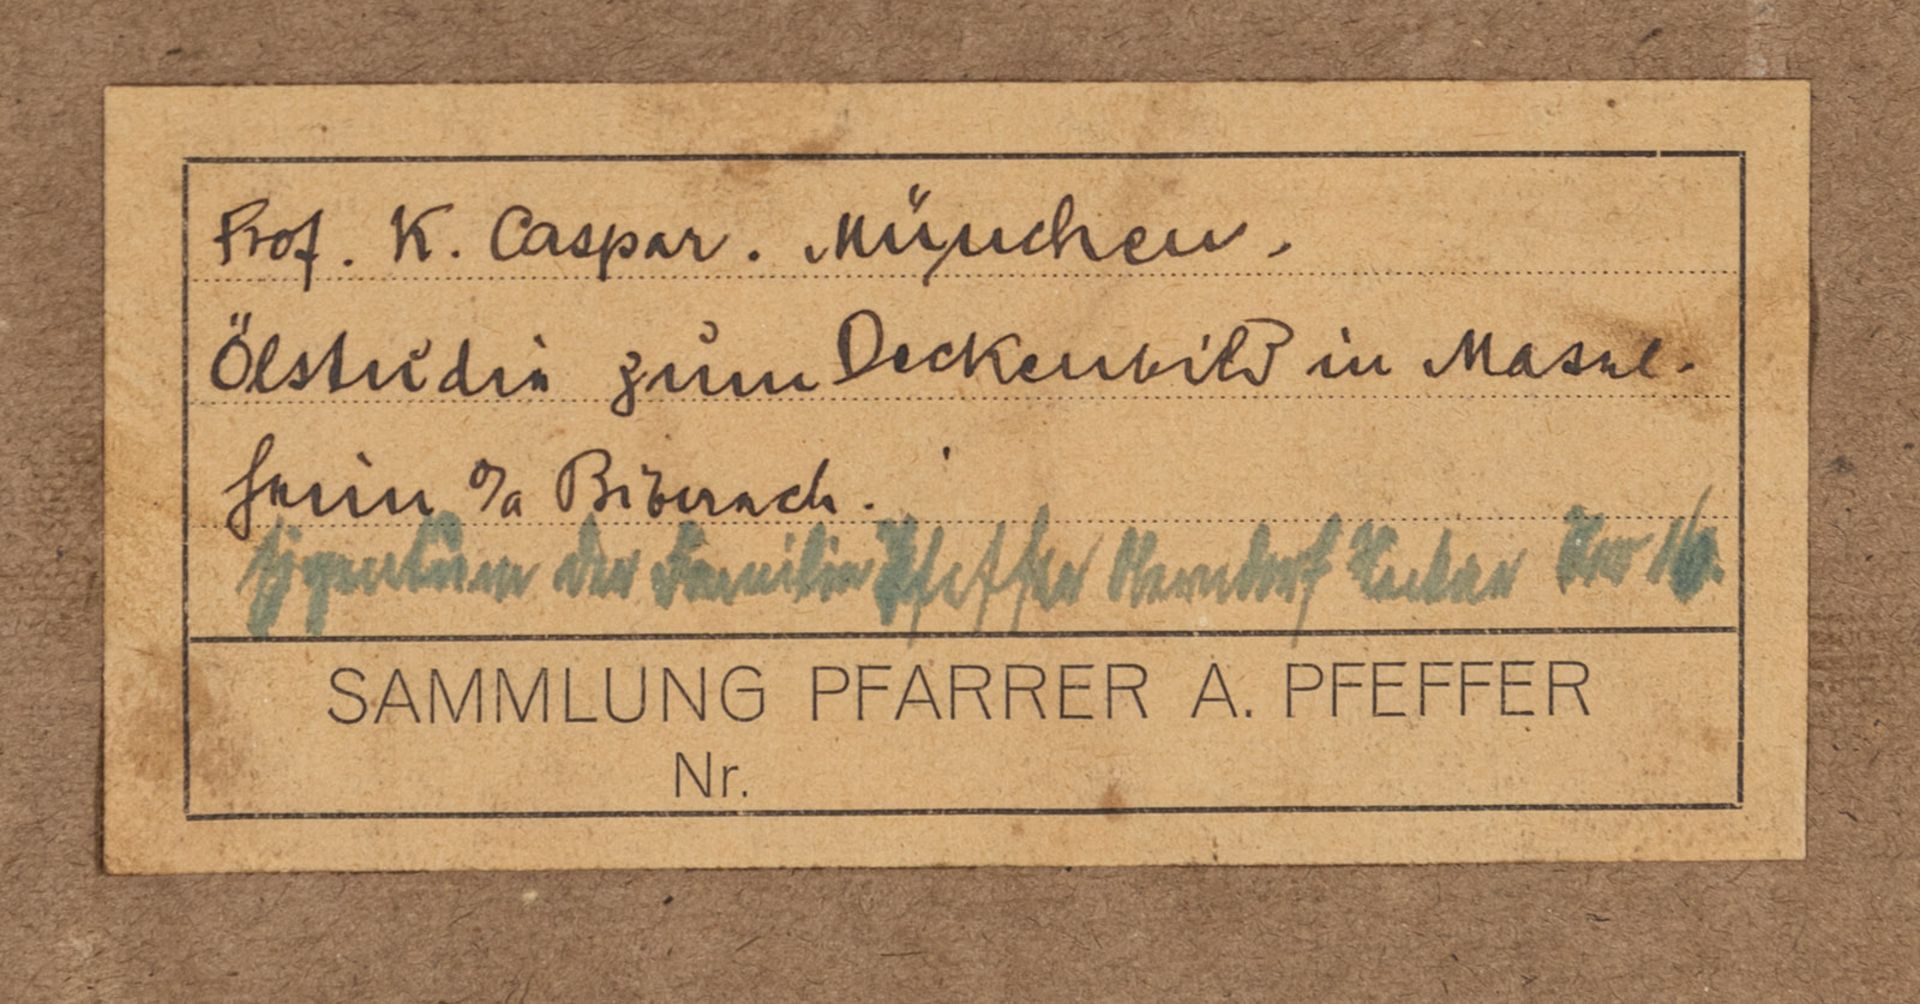 Prof. K. Caspar. München.
Ölstudie zum Deckenbild in Masel-
heim O/A Biberach.
Eigentum der Familie Pfeffer Neckar
SAMMLUNG PFARRER A. PFEFFER
Nr.